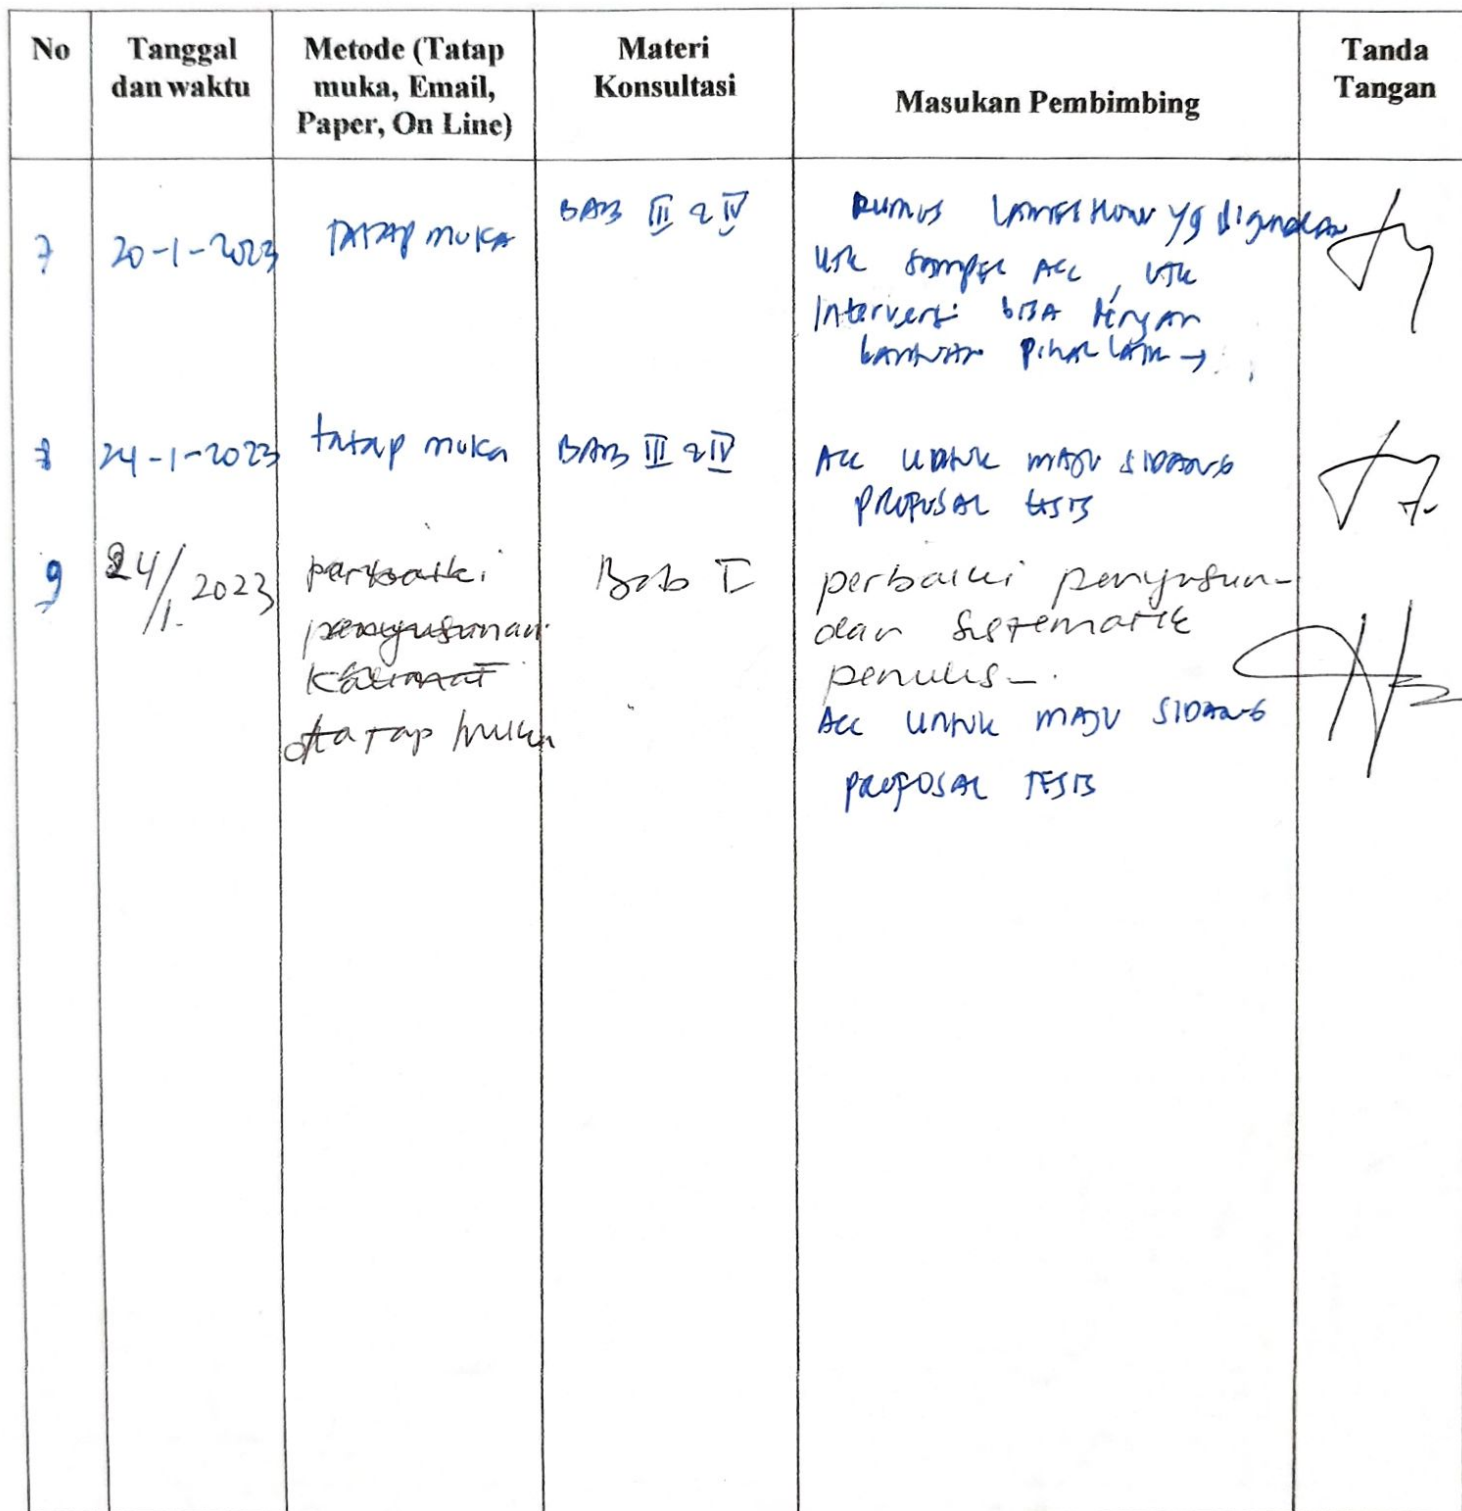 No
Tanggal
dan waktu
Metode (Tatap
muka, Email,
Paper, On Line)
Materi
Konsultasi
Masukan Pembimbing
Tanda
Tangan
7
20-1-2023
TATAP muKA
BAB III & IV
Rumus Lameshow yg digunakan
utk sampel Acc, utk
Intervensi bisA dengan
bantuan pihak lain →
8
24-1-2023
tatap muka
BAB III & IV
Acc UNtuk maju SIDANG
PROPOSAL tesis
9
24/1. 2023
perbaiki
penyusunan
Kalimat
tatap muka
Bab I
perbaiki penyusun-
dan Sistematik
penulis-.
Acc UNtuk maju SIDANG
PROPOSAL TESIS